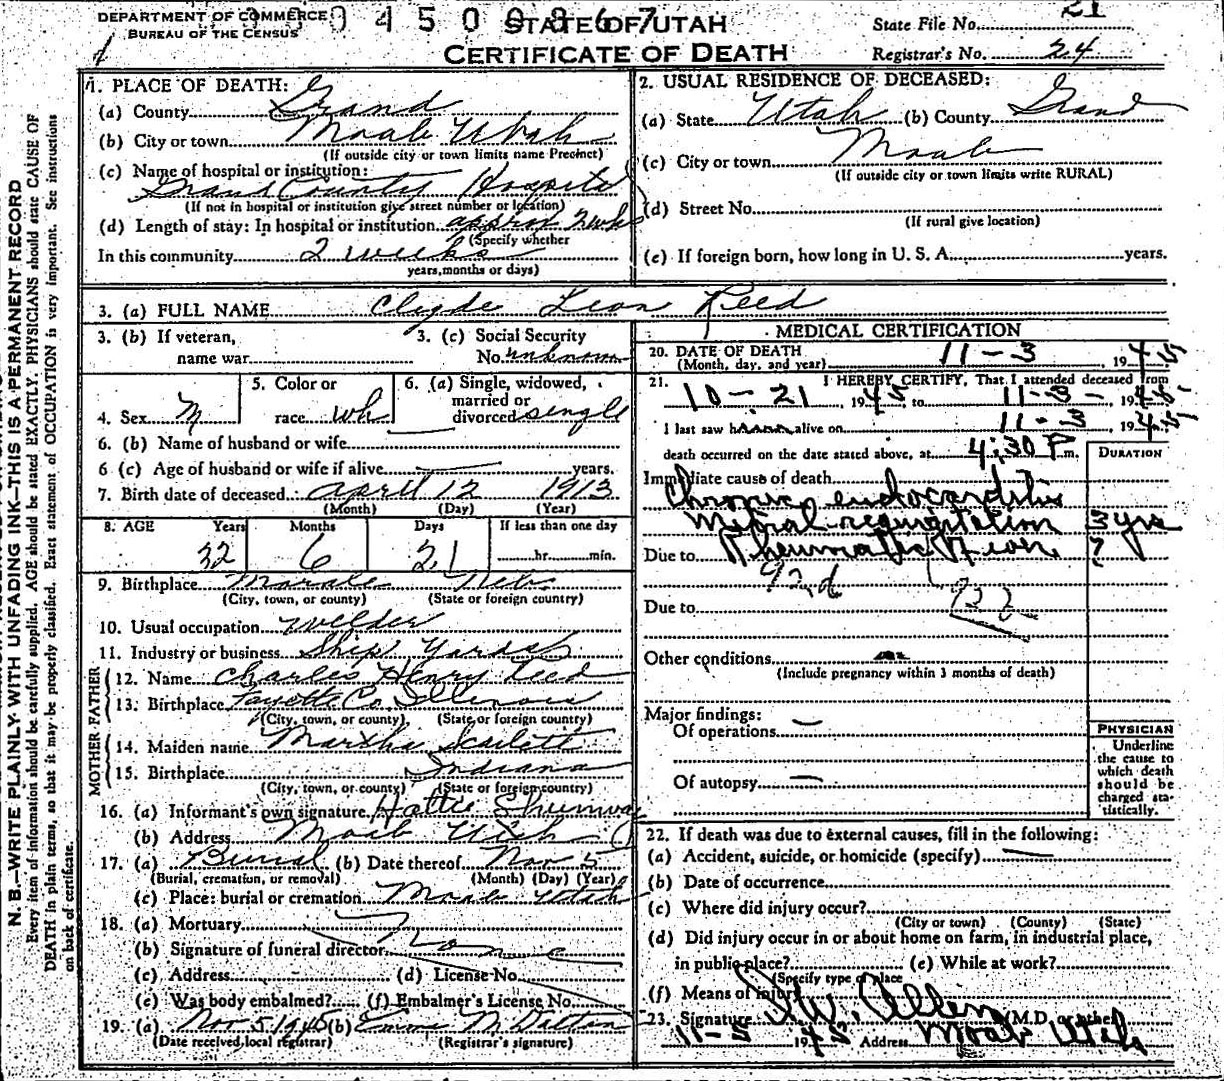 DEPARTMENT OF COMMERCE
BUREAU OF THE CENSUS
STATE OF UTAH
CERTIFICATE OF DEATH
State File No. 21
Registrar's No. 24
N. B.—WRITE PLAINLY WITH UNFADING INK—THIS IS A PERMANENT RECORD
Every item of information should be carefully supplied. AGE should be stated EXACTLY. PHYSICIANS should state CAUSE OF
DEATH in plain terms, so that it may be properly classified. Exact statement of OCCUPATION is very important. See instructions
on back of certificate.
1. PLACE OF DEATH:
(a) County Grand
(b) City or town Moab Utah
(If outside city or town limits name Precinct)
(c) Name of hospital or institution:
Grand County Hospital
(If not in hospital or institution give street number or location)
(d) Length of stay: In hospital or institution approx 2 wks
(Specify whether
In this community 2 weeks
years, months or days)
2. USUAL RESIDENCE OF DECEASED:
(a) State Utah (b) County Grand
(c) City or town Moab
(If outside city or town limits write RURAL)
(d) Street No.
(If rural give location)
(e) If foreign born, how long in U. S. A. years.
3. (a) FULL NAME Clyde Leon Reed
3. (b) If veteran,
name war
3. (c) Social Security
No. unknown
4. Sex M
5. Color or
race wh
6. (a) Single, widowed,
married or
divorced single
6. (b) Name of husband or wife
6 (c) Age of husband or wife if alive years.
7. Birth date of deceased: April 12 1913
(Month) (Day) (Year)
8. AGE Years Months Days If less than one day
32 6 21 hr. min.
9. Birthplace Nebr
(City, town, or county) (State or foreign country)
10. Usual occupation Welder
11. Industry or business Ship Yards
FATHER
12. Name Charles Henry Reed
13. Birthplace Fayette Co. Illinois
(City, town, or county) (State or foreign country)
MOTHER
14. Maiden name Martha Scarlett
15. Birthplace Indiana
(City, town, or county) (State or foreign country)
16. (a) Informant's own signature Hattie Shumway
(b) Address Moab Utah
17. (a) Burial (b) Date thereof Nov 5
(Burial, cremation, or removal) (Month) (Day) (Year)
(c) Place: burial or cremation Moab Utah
18. (a) Mortuary
(b) Signature of funeral director None
(c) Address (d) License No.
(e) Was body embalmed? (f) Embalmer's License No.
19. (a) Nov 5 1945 (b) Emma M Dalton
(Date received local registrar) (Registrar's signature)
MEDICAL CERTIFICATION
20. DATE OF DEATH 11-3, 1945
(Month, day, and year)
21. I HEREBY CERTIFY, That I attended deceased from
10-21, 1945, to 11-3-, 1945
I last saw h alive on 11-3, 1945
death occurred on the date stated above, at 4:30 P m.
DURATION
Immediate cause of death
Chronic endocarditis
Mitral regurgitation 3 yrs
Due to Rheumatic ?
92d
Due to
Other conditions
(Include pregnancy within 3 months of death)
Major findings:
Of operations —
Of autopsy —
PHYSICIAN
Underline
the cause to
which death
should be
charged sta-
tistically.
22. If death was due to external causes, fill in the following:
(a) Accident, suicide, or homicide (specify) —
(b) Date of occurrence
(c) Where did injury occur?
(City or town) (County) (State)
(d) Did injury occur in or about home on farm, in industrial place,
in public place? (e) While at work?
(Specify type of place
(f) Means of injury
23. Signature Allen (M.D. or other)
11-5 1945 Address Moab Utah